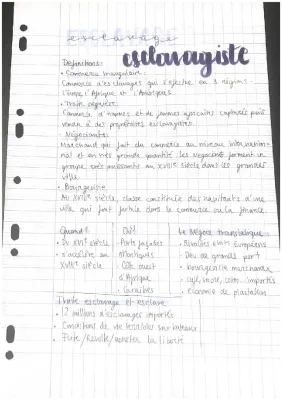 esclavage
esclavagiste
Définitions:
• Commerce triangulaire:
Commerce d'esclavages qui s'effectue en 3 régions.
l'Europe l'Afrique et l'Amériques
• Traite négrière:
Commerce d'hommes et de femmes africains capturés pour
vendre à des propriétaires esclavagistes.
• Négociants:
Marchand qui fait du commerce au niveau internation-
nal et en très grande quantité. les négociants forment un
groupe très puissants au XVIIIe siècle dont les grandes
ville.
• Bourgeoisie:
Au XVIIIe siècle, classe constituée des habitants d'une
ville qui font fortune dans le commerce ou la finance.
Quand?
• Du XVIe siècle
s'accélère au
XVIIe siècle
Où?
• Ports façades
Atlantiques
• Côte ouest
d'Afrique
• Caraïbes
Le négoce transatlantique:
• Rivalités états Européens
• Dev. de grands port
• bourgeoisie marchande
• café, sucre, coton.. importés
• économie de plantation
Traite esclavage et esclave
• 12 millions d'esclavages importés
• Conditions de vie terribles sur bateaux
• Fuite/Révolte/acheter la liberté